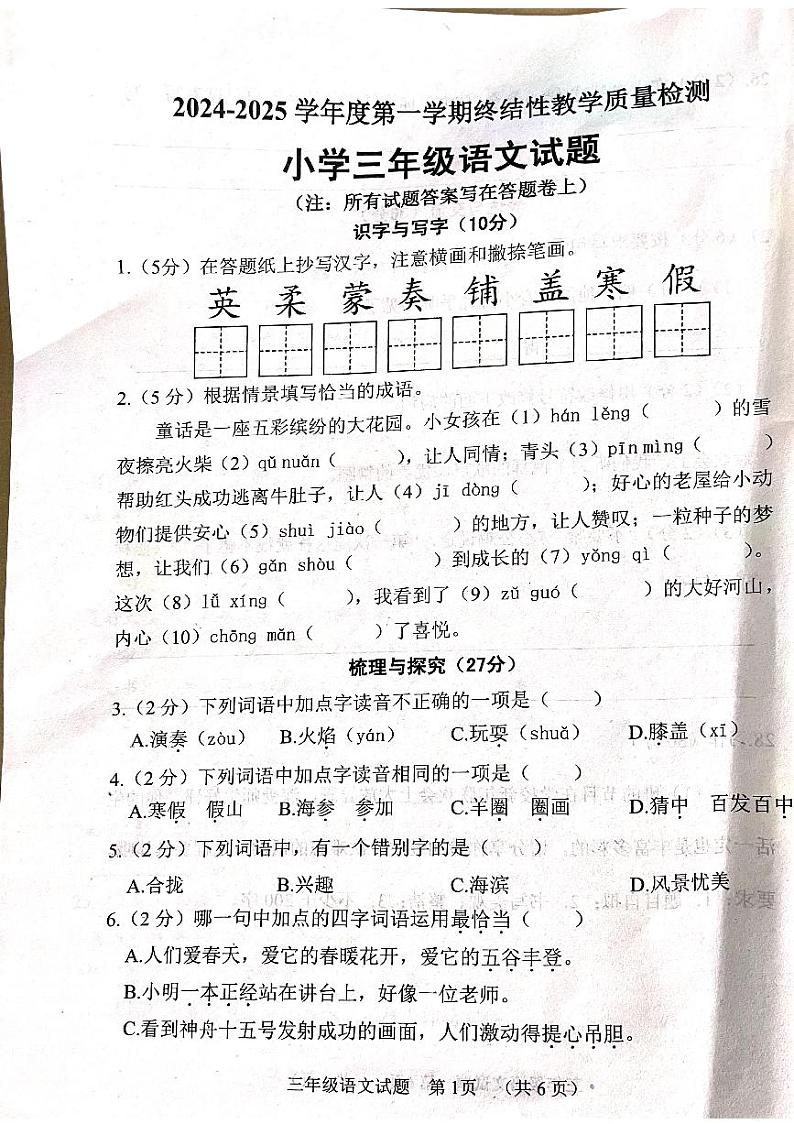 2024-2025 学年度第一学期终结性教学质量检测
小学三年级语文试题
（注：所有试题答案写在答题卷上）
识字与写字（10分）
1.（5分）在答题纸上抄写汉字，注意横画和撇捺笔画。
英 柔 蒙 奏 铺 盖 寒 假
2.（5 分）根据情景填写恰当的成语。
童话是一座五彩缤纷的大花园。小女孩在（1）hán lěng（ ）的雪
夜擦亮火柴（2）qǔ nuǎn（ ），让人同情；青头（3）pīn mìng（ ）
帮助红头成功逃离牛肚子，让人（4）jī dòng（ ）；好心的老屋给小动
物们提供安心（5）shuì jiào（ ）的地方，让人赞叹；一粒种子的梦
想，让我们（6）gǎn shòu（ ）到成长的（7）yǒng qì（ ）。
这次（8）lǚ xíng（ ），我看到了（9）zǔ guó（ ）的大好河山，
内心（10）chōng mǎn（ ）了喜悦。
梳理与探究（27分）
3.（2 分）下列词语中加点字读音不正确的一项是（ ）
A.演奏（zòu） B.火焰（yán） C.玩耍（shuǎ） D.膝盖（xī）
4.（2 分）下列词语中加点字读音相同的一项是（ ）
A.寒假 假山 B.海参 参加 C.羊圈 圈画 D.猜中 百发百中
5.（2 分）下列词语中，有一个错别字的是（ ）
A.合拢 B.兴趣 C.海滨 D.风景忧美
6.（2 分）哪一句中加点的四字词语运用最恰当（ ）
A.人们爱春天，爱它的春暖花开，爱它的五谷丰登。
B.小明一本正经站在讲台上，好像一位老师。
C.看到神舟十五号发射成功的画面，人们激动得提心吊胆。
三年级语文试题 第 1页 （共 6 页）